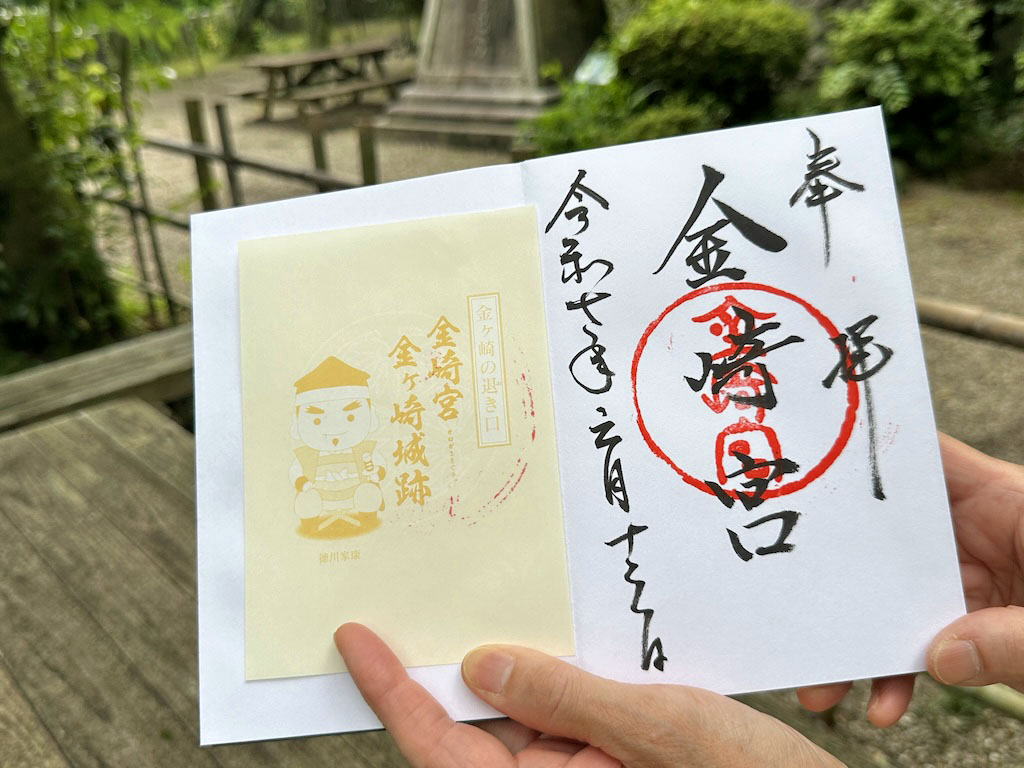 奉拝
金崎宮
金崎宮
令和七年六月十三日
金ヶ崎の退き口
金崎宮
金ヶ崎城跡
徳川家康